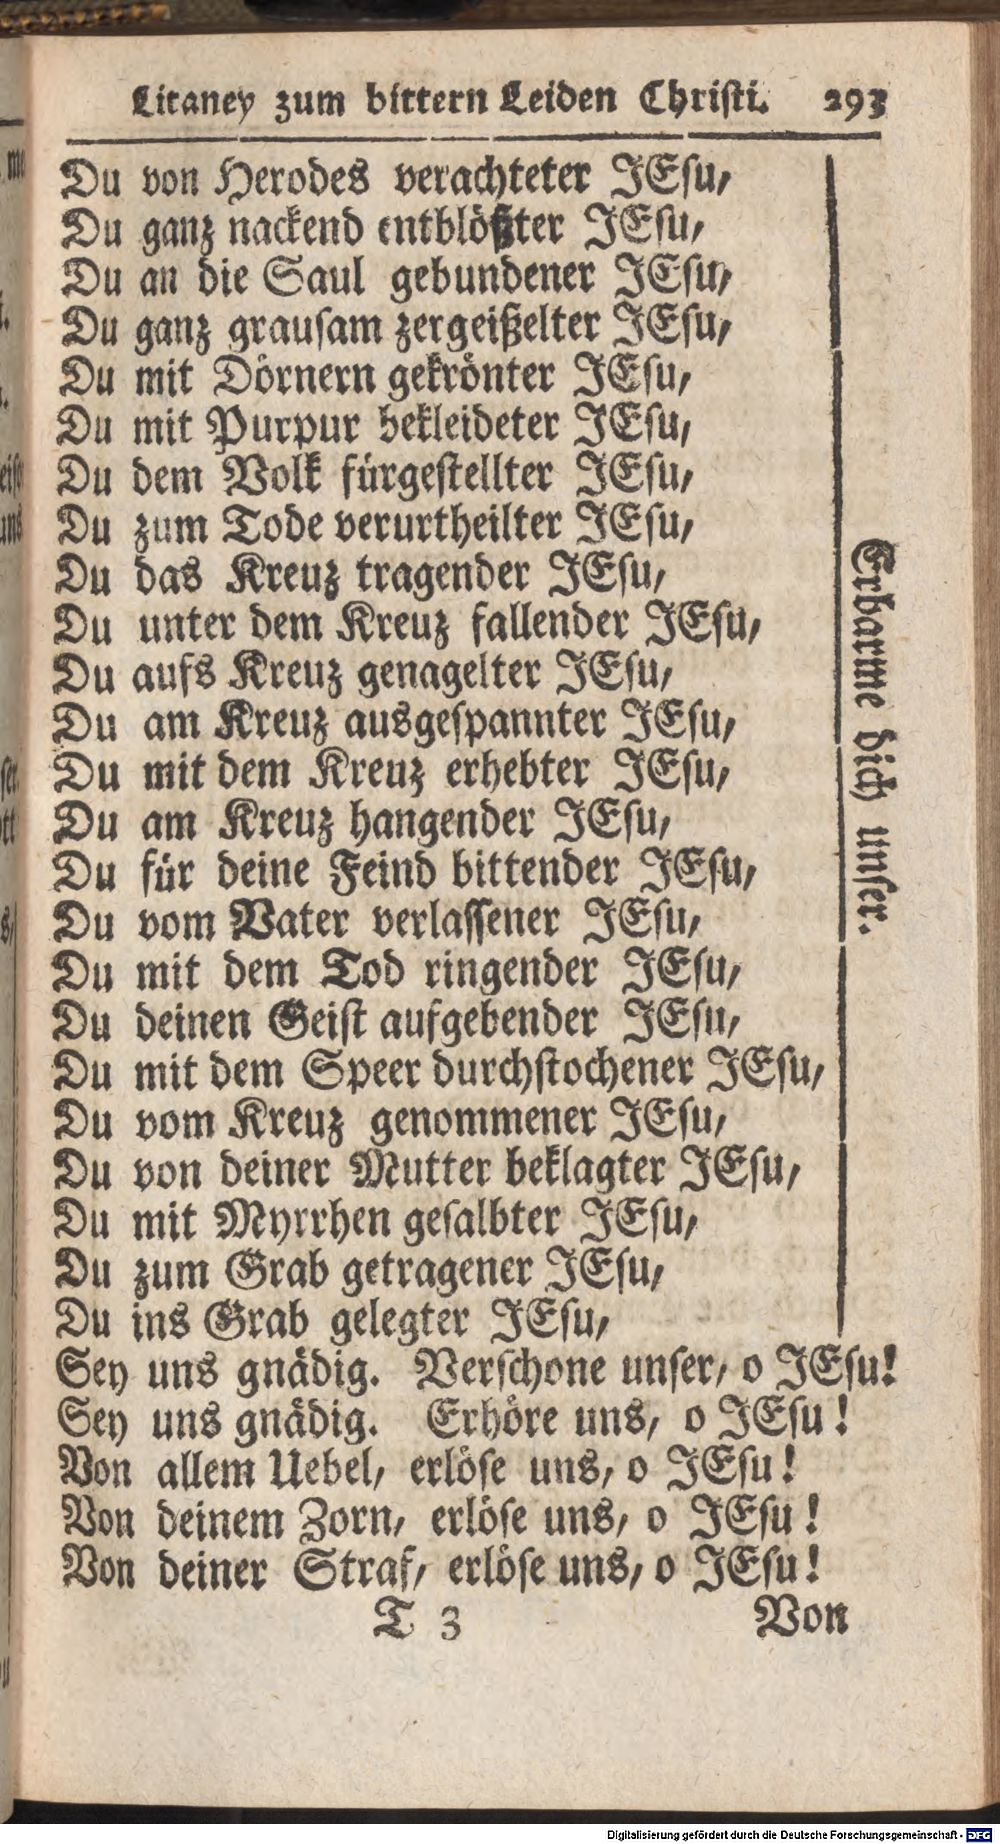 Litaney zum bittern Leiden Christi. 293
Du von Herodes verachteter JEsu,
Du ganz nackend entblößter JEsu,
Du an die Saul gebundener JEsu,
Du ganz grausam zergeißelter JEsu,
Du mit Dörnern gekrönter JEsu,
Du mit Purpur bekleideter JEsu,
Du dem Volk fürgestellter JEsu,
Du zum Tode verurtheilter JEsu,
Du das Kreuz tragender JEsu,
Du unter dem Kreuz fallender JEsu,
Du aufs Kreuz genagelter JEsu,
Du am Kreuz ausgespannter JEsu,
Du mit dem Kreuz erhebter JEsu,
Du am Kreuz hangender JEsu,
Du für deine Feind bittender JEsu,
Du vom Vater verlassener JEsu,
Du mit dem Tod ringender JEsu,
Du deinen Geist aufgebender JEsu,
Du mit dem Speer durchstochener JEsu,
Du vom Kreuz genommener JEsu,
Du von deiner Mutter beklagter JEsu,
Du mit Myrrhen gesalbter JEsu,
Du zum Grab getragener JEsu,
Du ins Grab gelegter JEsu,
Erbarme dich unser.
Sey uns gnädig. Verschone unser, o JEsu!
Sey uns gnädig. Erhöre uns, o JEsu!
Von allem Uebel, erlöse uns, o JEsu!
Von deinem Zorn, erlöse uns, o JEsu!
Von deiner Straf, erlöse uns, o JEsu!
T 3 Von
Digitalisierung gefördert durch die Deutsche Forschungsgemeinschaft - DFG